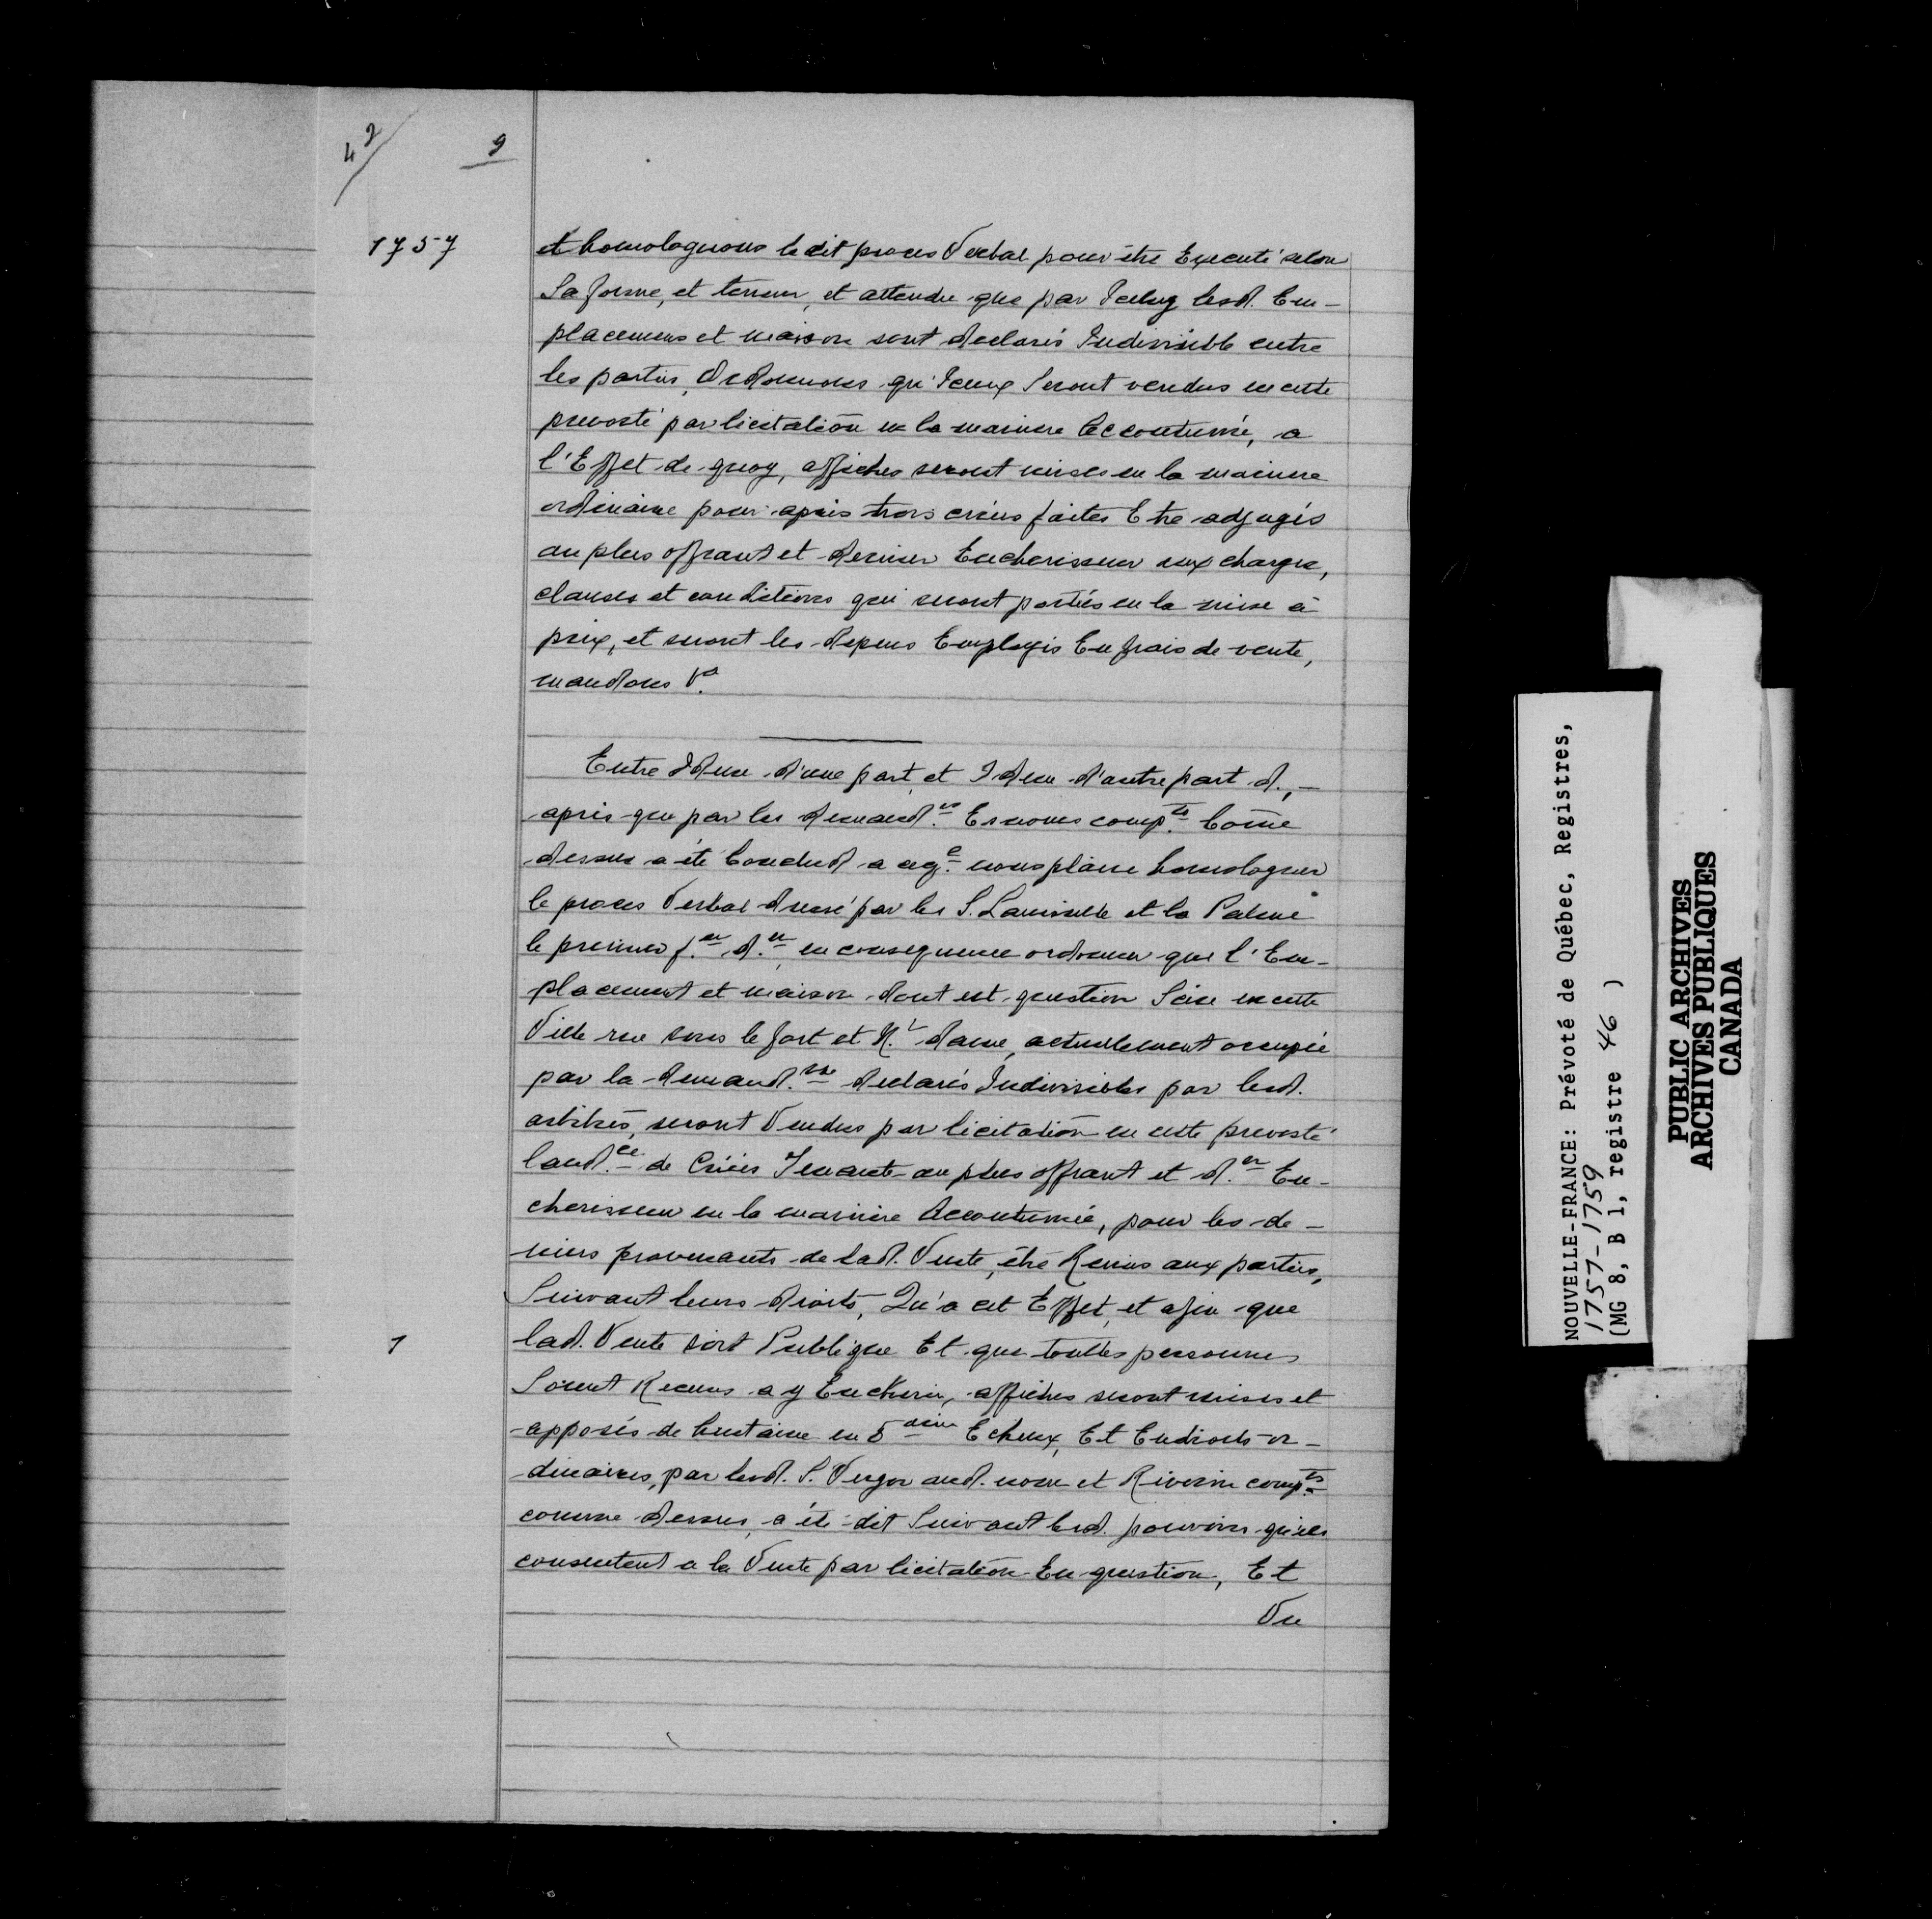 42
9
1757
et homologuons le dit proces Verbal pour être Executé selon
Sa forme, et teneur, et attendu que par Iceluy lesd. Em-
placemens et maison sont declarés Indivisible entre
les parties, Ordonnons qu'Iceux Seront vendus en cette
prevosté par licitation en la maniere accoutumée, a
l'Effet de quoy, affiches seront mises en la maniere
ordinaire pour apres trois criées faites Etre adjugés
au plus offrant et dernier Encherisseur aux charges,
clauses et conditions qui seront portées en la mise à
prix, et seront les depens Employés En frais de vente,
mandons V.ª
Entre Idem d'une part, et Idem d'autre part d.,-
après que par les demand.rs Es noms comp.ts Come
dessus a été Conclud a ce q.e nous plaise homologuer
le proces Verbal dressé par les S. Lanoullle et la Palme
le premier f.er d.er en consequence ordonner que l'Em-
placement et maison dont est question Scise en cette
Ville rue sous le fort et N.e dame, actuellement occupée
par la demand.sse declarés Indivisibles par lesd.
arbitres, seront Vendus par licitation en cette prevosté
laud.ce de Criées Tenante au plus offrant et d.er En-
cherisseur en la maniere Accoutumée, pour les de-
niers provenants de lad. Vente, être Remis aux parties,
Suivant leurs droits, Qu'a cet Effet, et afin que
1
lad. Vente soit Publique Et que touttes personnes
Soient Recues a y Encherir, affiches seront mises et
apposés de huitaine en 8.aine Ecluux, Et Endroits or-
dinaires, par lesd. S. Vergor aud. nom et Riverin comp.ts
comme dessus, a été dit Suivant lesd. pouvoirs qu'ils
consentent a la Vente par licitation En question, Et
Vu
NOUVELLE-FRANCE: Prévoté de Québec, Registres,
1757-1759
(MG 8, B 1, registre 46 )
PUBLIC ARCHIVES
ARCHIVES PUBLIQUES
CANADA